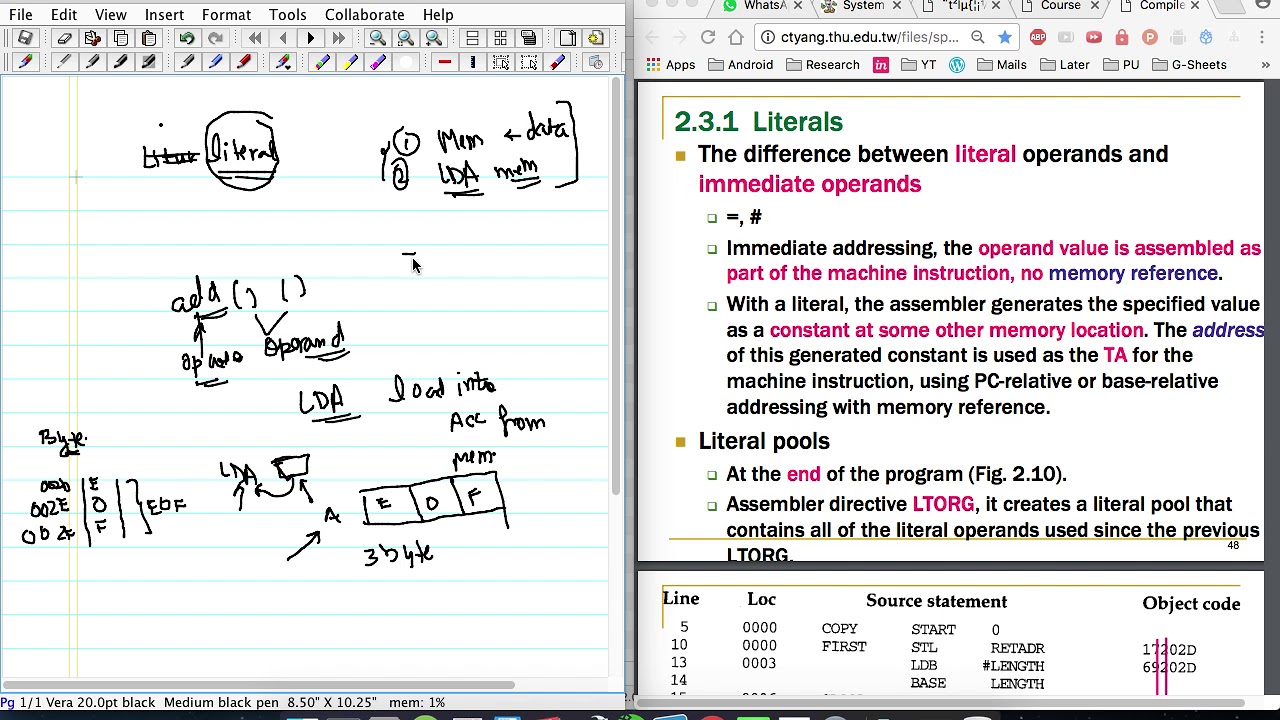 File Edit View Insert Format Tools Collaborate Help
literal
① Mem ← data
② LDA mem
add ( ) ( )
opcode operand
LDA load into
Acc from
mem
Byte
LDA
E
O
F
EOF
002E
A
E O F
3 byte
Pg 1/1 Vera 20.0pt black Medium black pen 8.50" X 10.25" mem: 1%
WhatsA
System
Course
Compile
ctyang.thu.edu.tw/files/sp...
Apps Android Research YT Mails Later PU G-Sheets »
2.3.1 Literals
The difference between literal operands and
immediate operands
=, #
Immediate addressing, the operand value is assembled as
part of the machine instruction, no memory reference.
With a literal, the assembler generates the specified value
as a constant at some other memory location. The address
of this generated constant is used as the TA for the
machine instruction, using PC-relative or base-relative
addressing with memory reference.
Literal pools
At the end of the program (Fig. 2.10).
Assembler directive LTORG, it creates a literal pool that
contains all of the literal operands used since the previous
LTORG.
48
Line Loc Source statement Object code
5 0000 COPY START 0
10 0000 FIRST STL RETADR 17202D
13 0003 LDB #LENGTH 69202D
14 BASE LENGTH